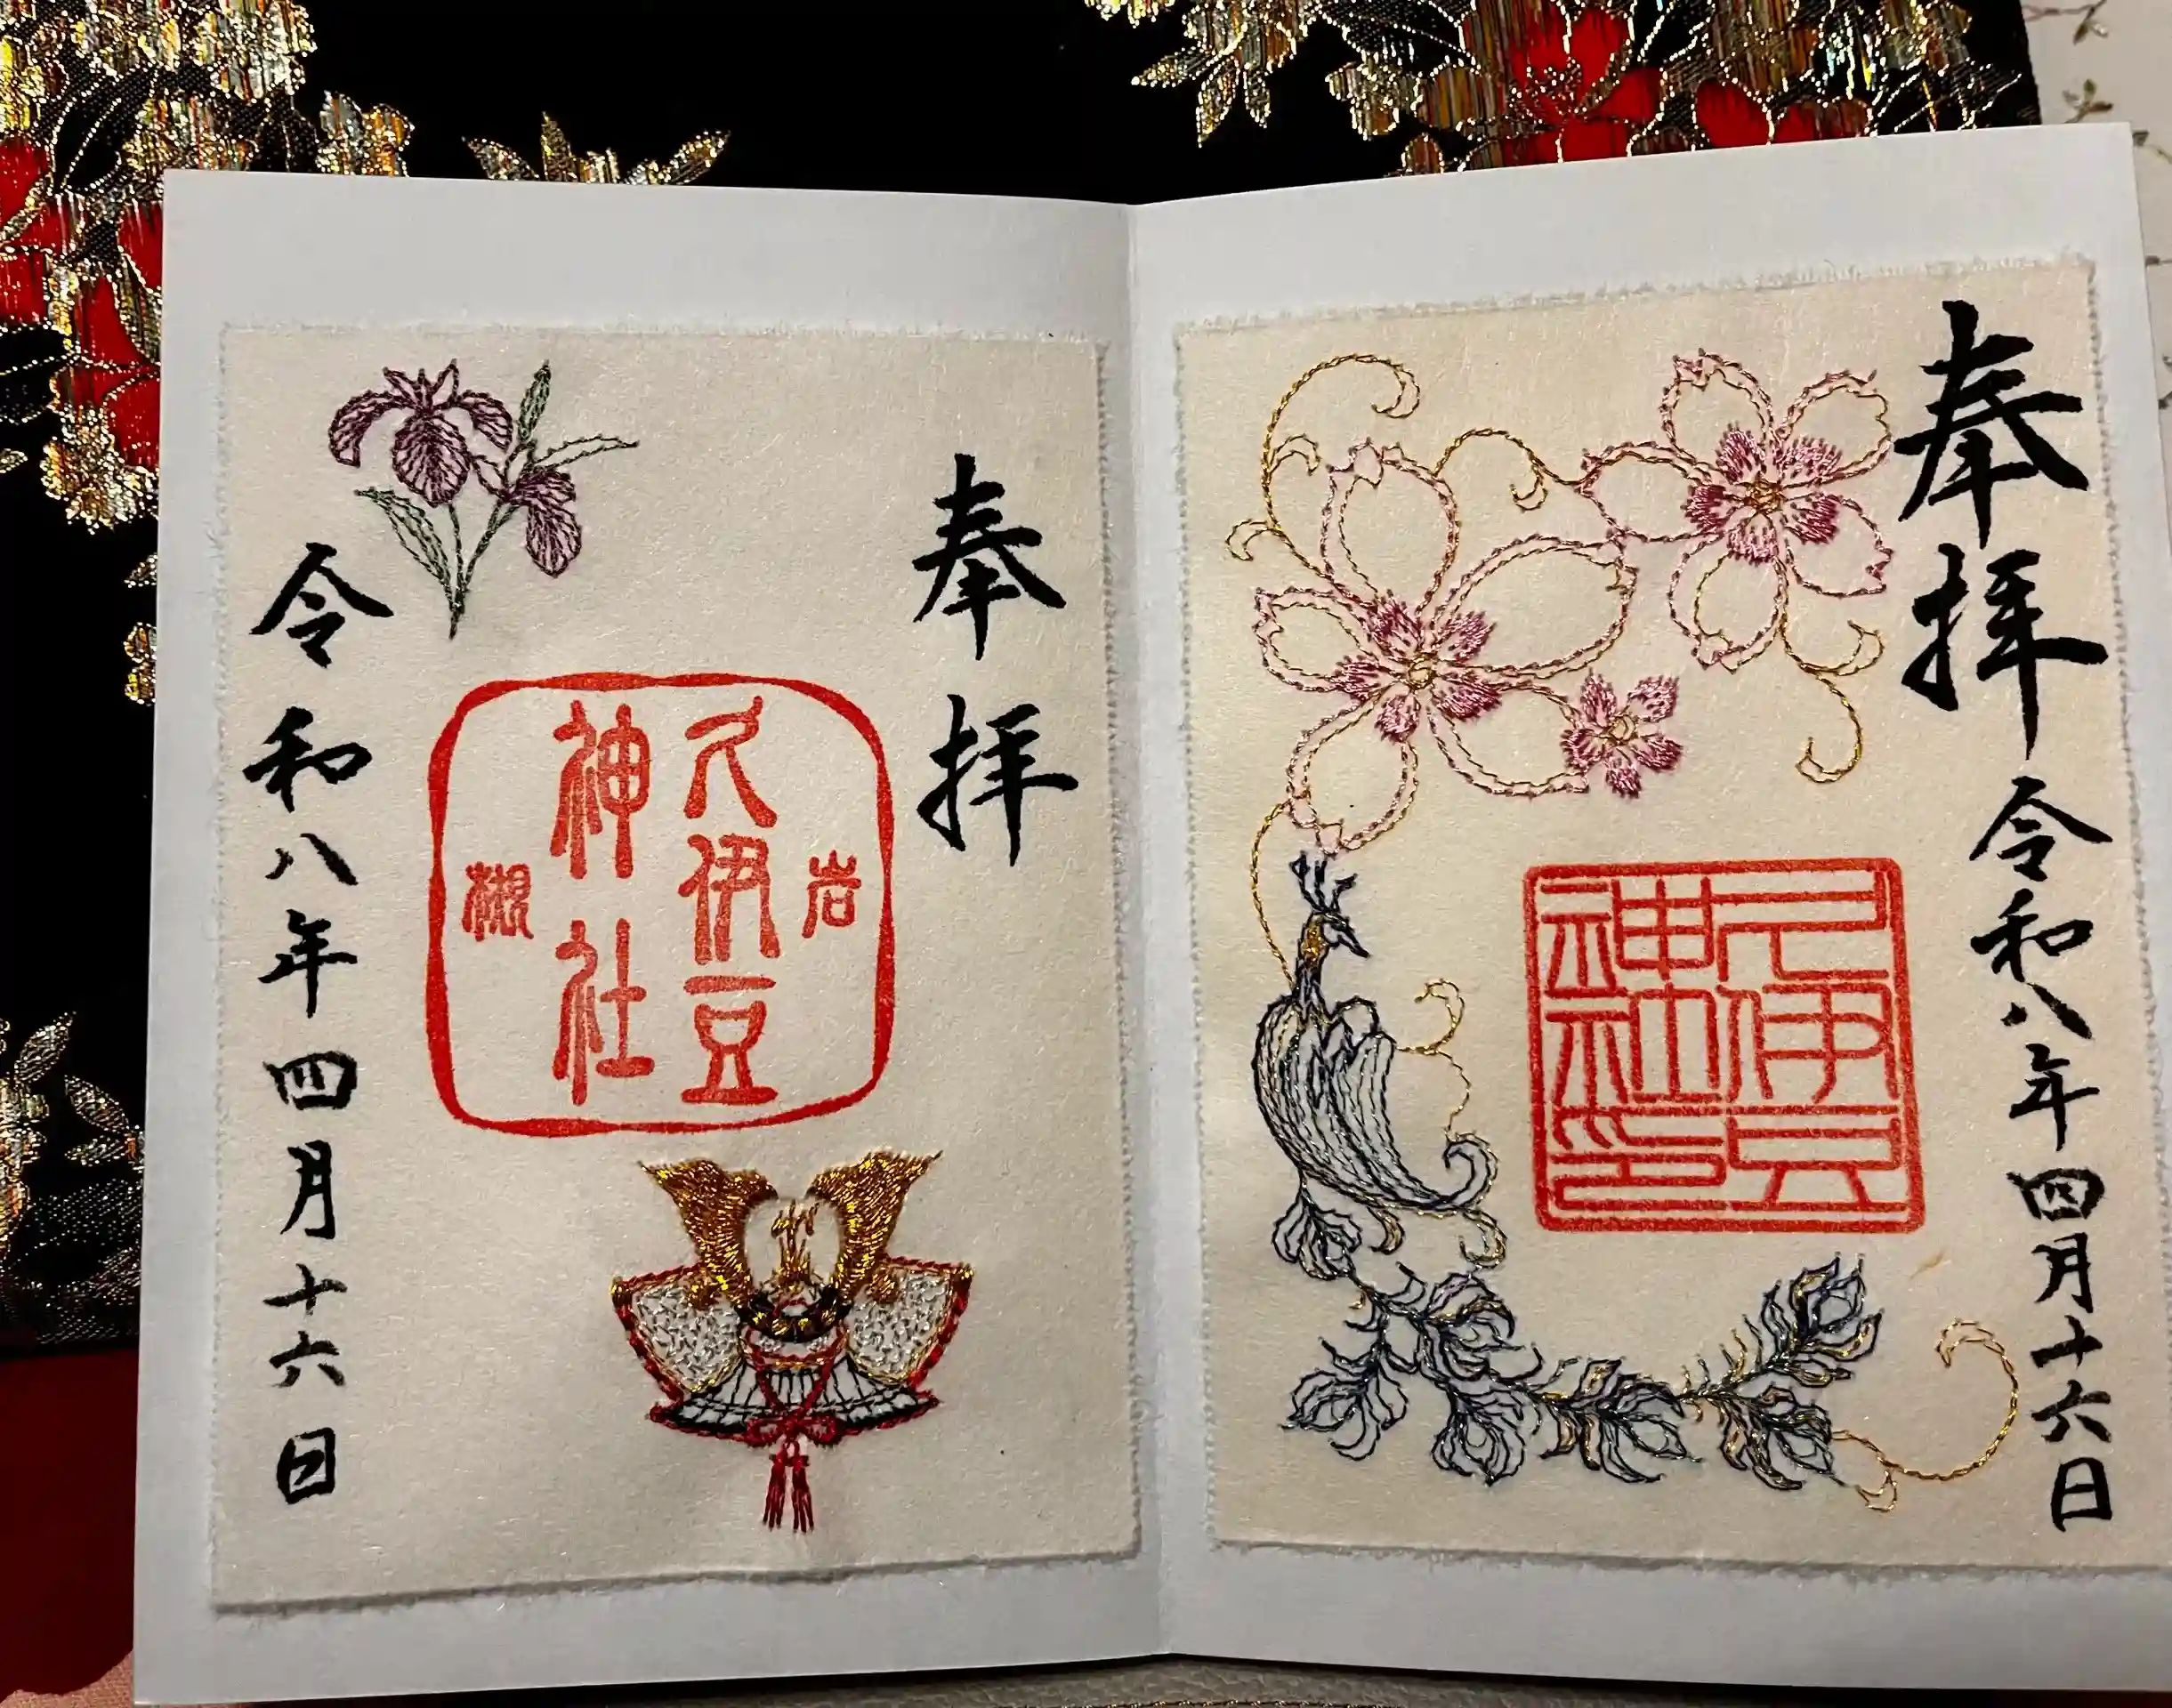 奉拝
令和八年四月十六日
久伊豆
神社印
奉拝
岩
久伊豆
神社
槻
令和八年四月十六日